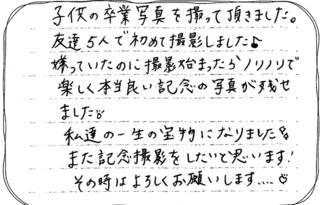 子供の卒業写真を撮って頂きました。
友達5人で初めて撮影しました♪
嫌っていたのに撮影始まったらノリノリで
楽しく本当良い記念の写真が残せ
ました
私達の一生の宝物になりました
また記念撮影をしたいと思います!
その時はよろしくお願いします....